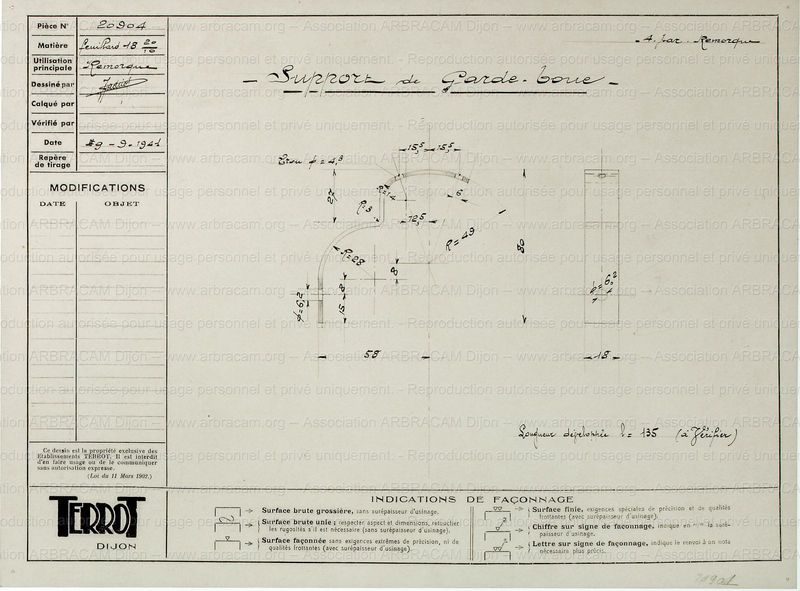 Pièce N° 20904
Matière Feuillard 18 20/10
Utilisation principale Remorque
Dessiné par
Calqué par
Vérifié par
Date 29-9-1941
Repère de tirage
MODIFICATIONS
DATE OBJET
4. par Remorque
Support de Garde-boue
Trou φ = 4,3
15,5 15,5
27
R=14
R=3
6
12,5
R=49
R=28
8
8
15
φ=6,2
80
58
φ=6,2
18
Longueur développée l= 135 (à Vérifier)
Ce dessin est la propriété exclusive des
Etablissements TERROT. Il est interdit
d'en faire usage ou de le communiquer
sans autorisation expresse.
(Loi du 11 Mars 1902.)
TERROT
DIJON
INDICATIONS DE FAÇONNAGE
Surface brute grossière, sans surépaisseur d'usinage.
Surface brute unie; respecter aspect et dimensions, retoucher
les rugosités s'il est nécessaire (sans surépaisseur d'usinage).
Surface façonnée sans exigences extrêmes de précision, ni de
qualités frottantes (avec surépaisseur d'usinage).
Surface finie, exigences spéciales de précision et de qualités
frottantes (avec surépaisseur d'usinage).
Chiffre sur signe de façonnage, indique en m/m la surépaisseur
d'usinage.
Lettre sur signe de façonnage, indique le renvoi à un nota
nécessaire plus précis.
Association ARBRACAM Dijon – www.arbracam.org – Association ARBRACAM Dijon – www.arbracam.org
Reproduction autorisée pour usage personnel et privé uniquement.